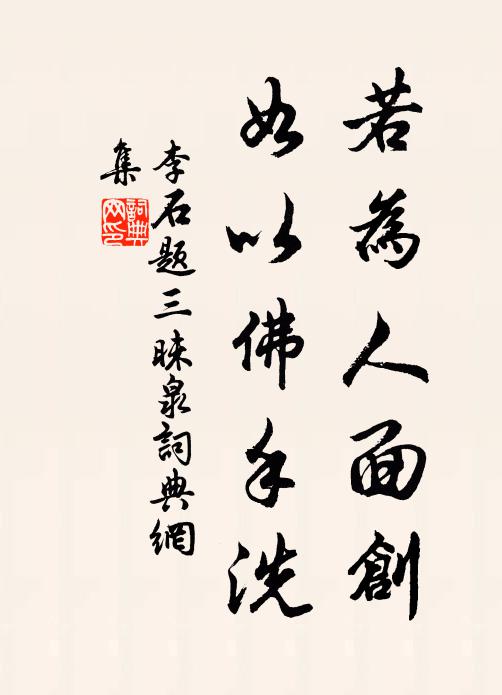 若為人面創
如以佛手洗
李石題三昧泉詞典網
集
詞典網印